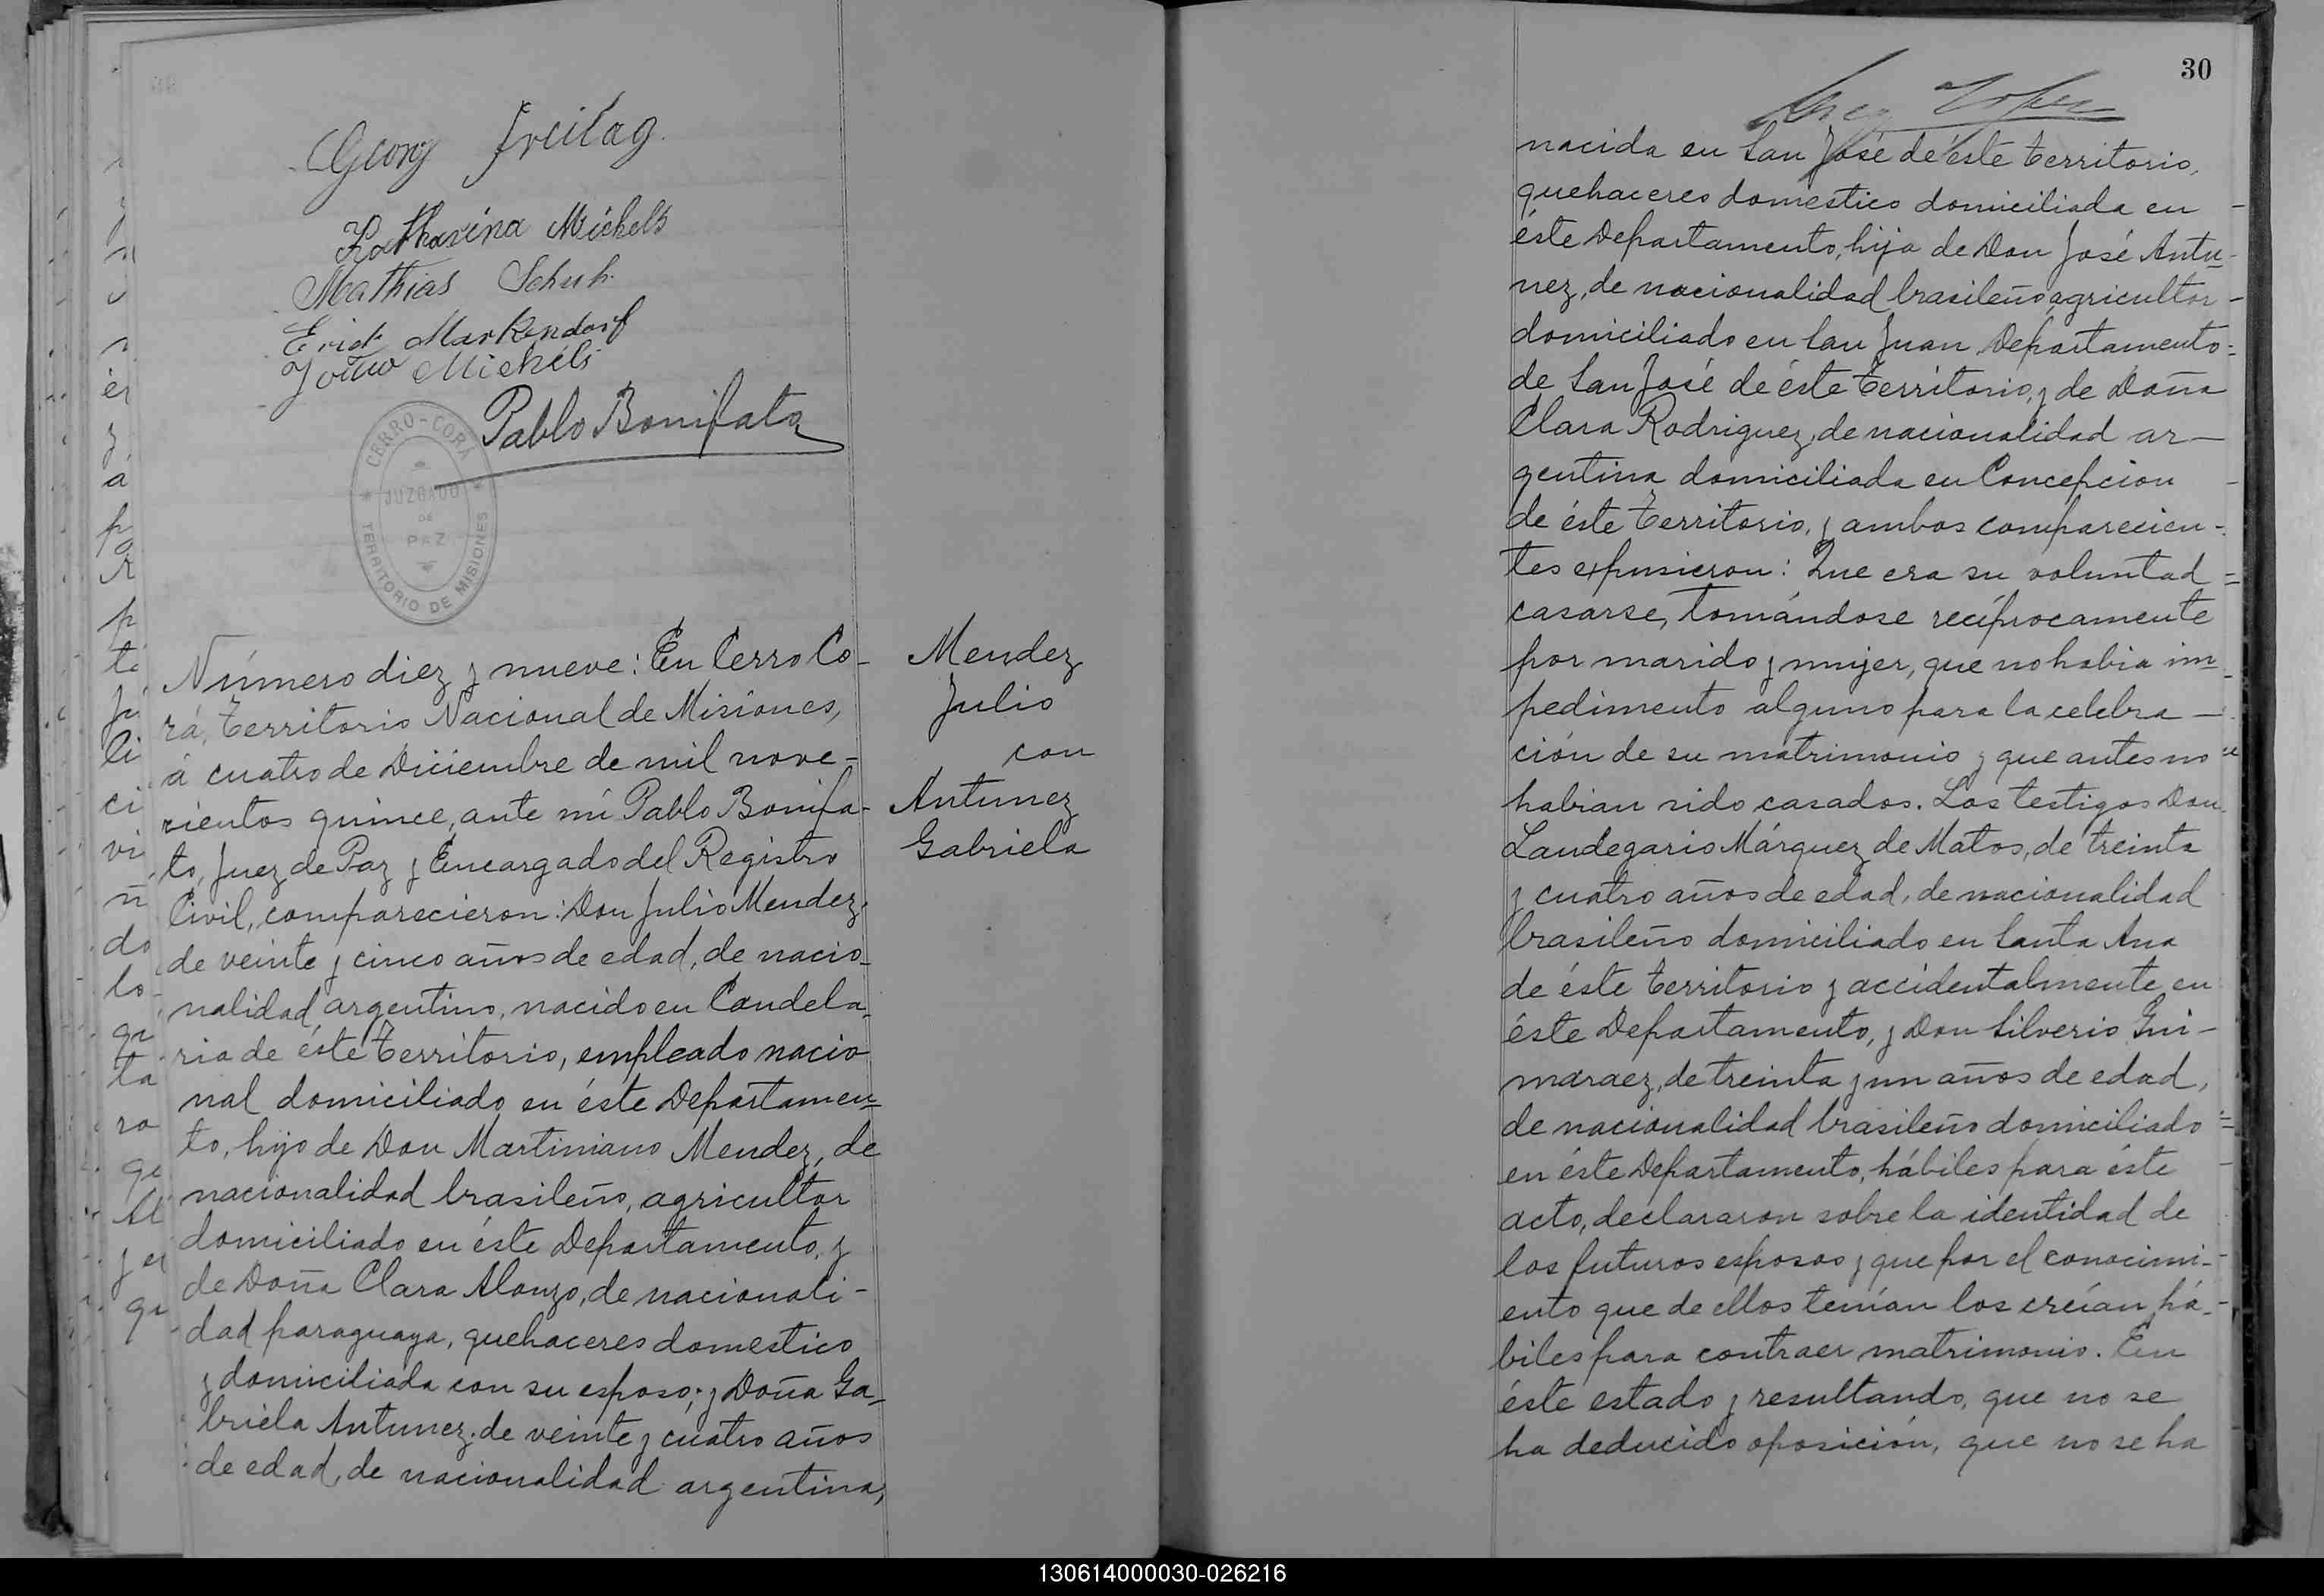 Georg Freitag
Katharina Michels
Mathias Schuh
Erich Markendorf
Pablo Bonifato
CERRO-CORÁ
JUZGADO
DE
PAZ
TERRITORIO DE MISIONES
Número diez y nueve: En Cerro Co-
rá, Territorio Nacional de Misiones,
á cuatro de Diciembre de mil nove-
cientos quince, ante mí Pablo Bonifa-
to, Juez de Paz y Encargado del Registro
Civil, comparecieron: Don Julio Mendez,
de veinte y cinco años de edad, de nacio-
nalidad argentino, nacido en Candela-
ria de éste Territorio, empleado nacio-
nal domiciliado en éste Departamen-
to, hijo de Don Martiniano Mendez, de
nacionalidad brasileño, agricultor
domiciliado en éste Departamento, y
de Doña Clara Alonzo, de nacionali-
dad paraguaya, quehaceres domestico
y domiciliada con su esposo; y Doña Ga-
briela Antunez, de veinte y cuatro años
de edad, de nacionalidad argentina,
Mendez
Julio
con
Antunez
Gabriela
30
nacida en San José de éste Territorio,
quehaceres domestico domiciliada en
éste Departamento, hija de Don José Antu-
nez, de nacionalidad brasileño, agricultor
domiciliado en San Juan Departamento
de San José de éste Territorio, y de Doña
Clara Rodriguez, de nacionalidad ar-
gentina domiciliada en Concepcion
de éste Territorio, y ambos comparecien-
tes expusieron: Que era su voluntad
casarse, tomándose recíprocamente
por marido y mujer, que no habia im-
pedimento alguno para la celebra-
ción de su matrimonio y que antes no
habian sido casados. Los testigos Don
Laudegario Márquez de Matos, de treinta
y cuatro años de edad, de nacionalidad
brasileño domiciliado en Santa Ana
de éste Territorio y accidentalmente en
éste Departamento, y Don Silverio Gui-
maraez, de treinta y un años de edad,
de nacionalidad brasileño domiciliado
en éste Departamento, hábiles para éste
acto, declararon sobre la identidad de
los futuros esposos y que por el conocimi-
ento que de ellos tenían los creían há-
biles para contraer matrimonio. En
éste estado y resultando, que no se
ha deducido oposición, que no se ha
130614000030-026216